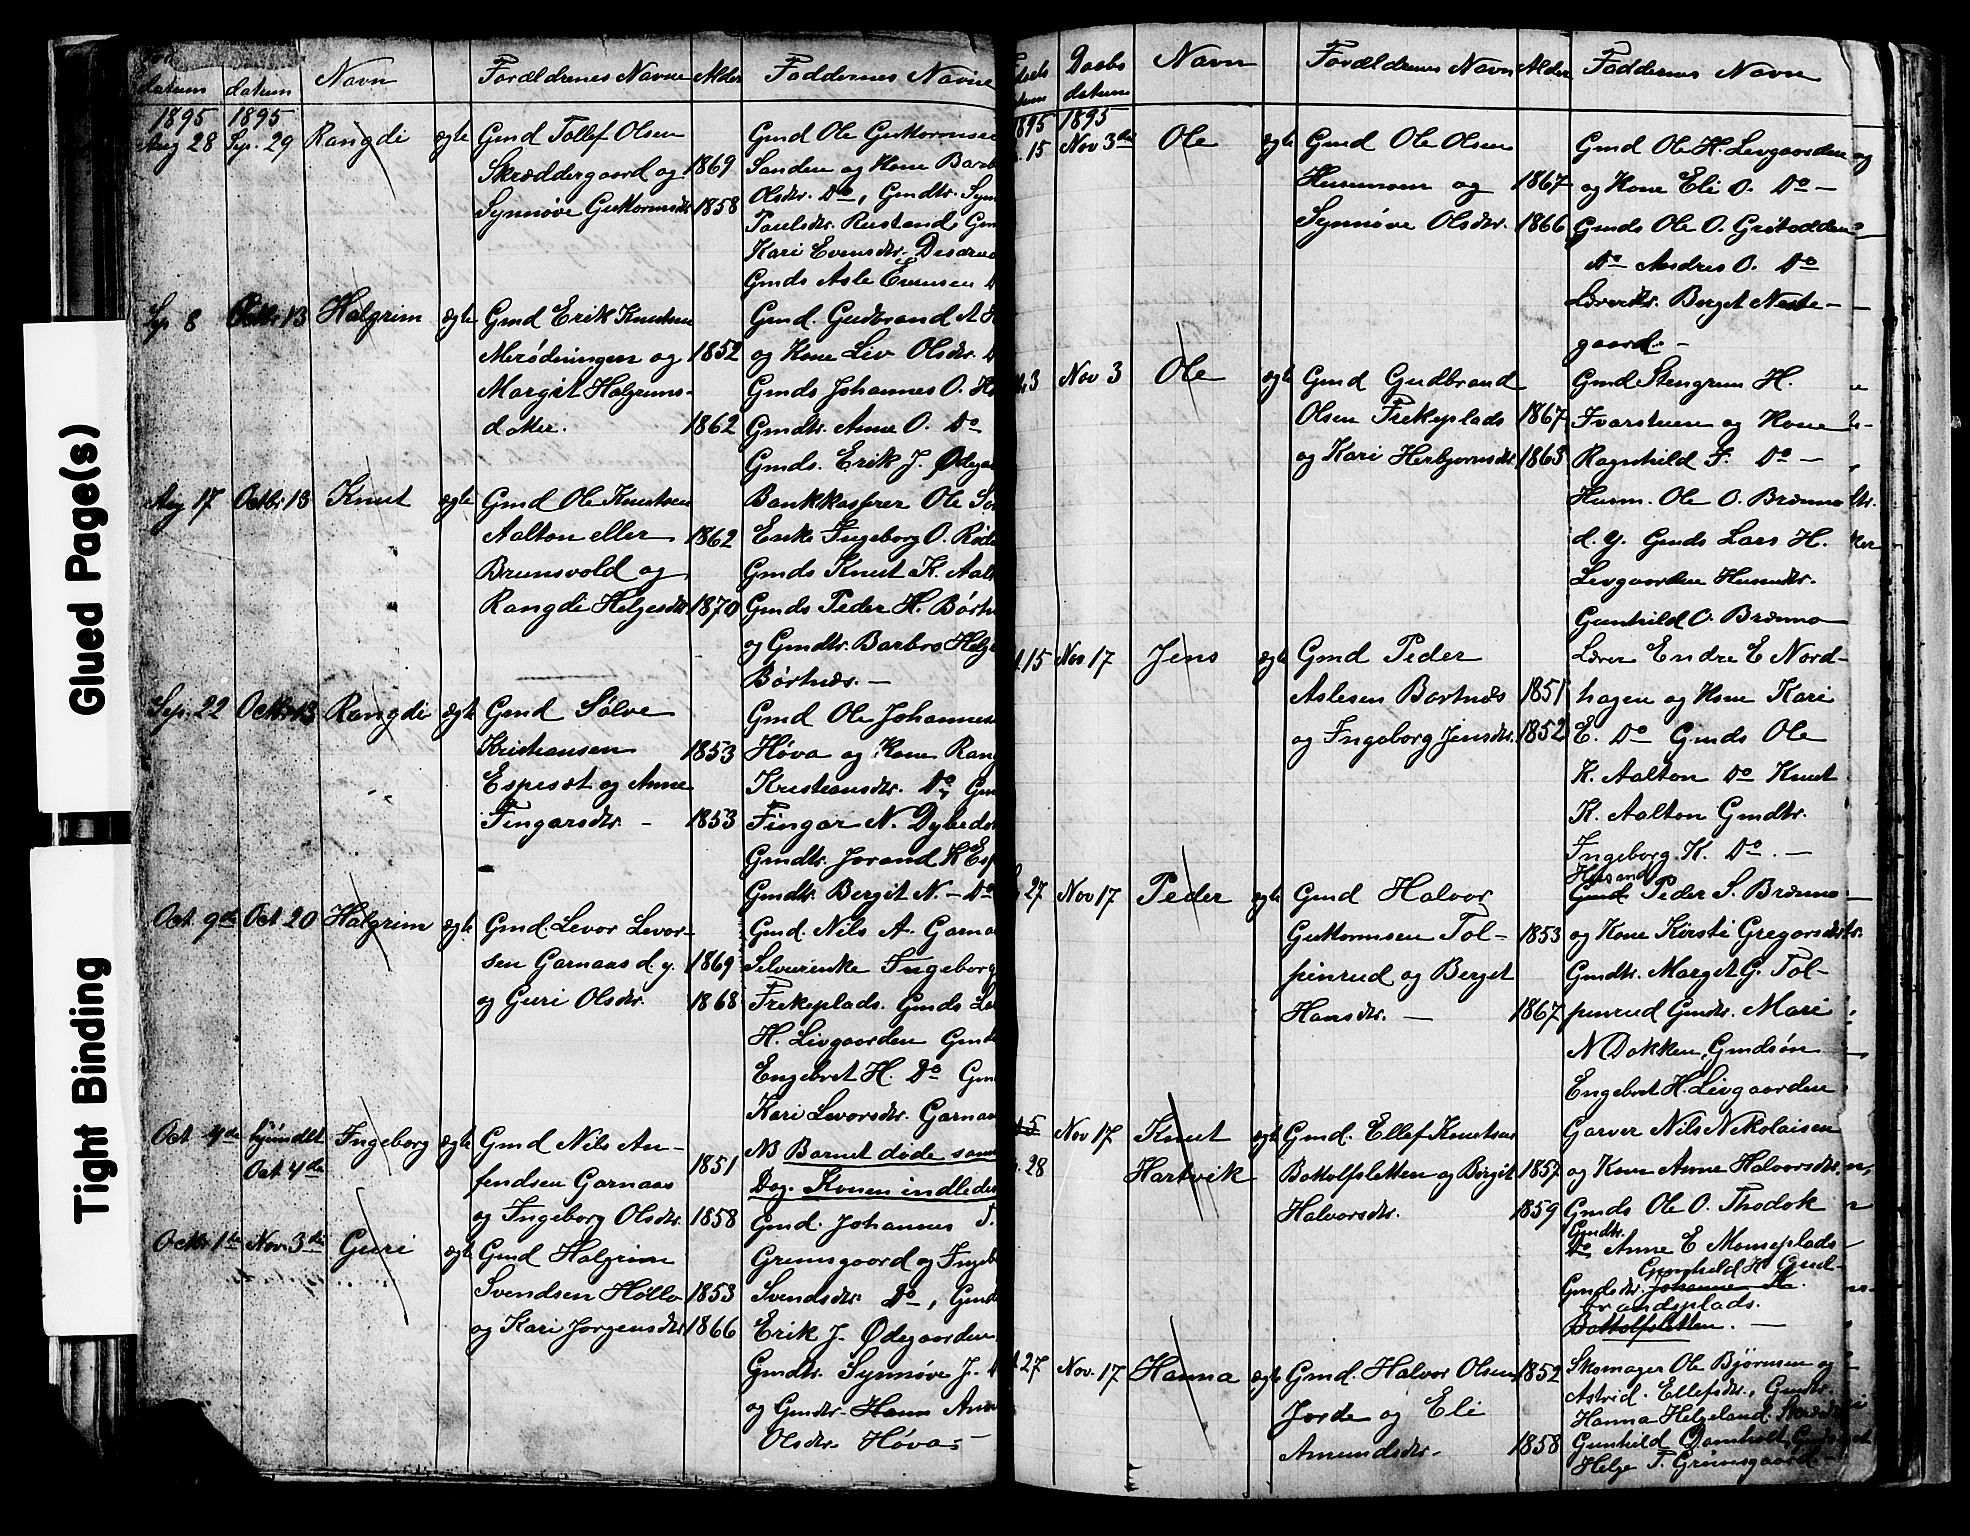 Glued Page(s)
Tight Binding
datum datum Navn Forældrenes Navne Alder Faddernes Navne
1895 1895
Aug 28 Sep. 29 Rangdi ægte Gmd Tollef Olsen
Skræddergaard og 1869
Synnøve Guttormsdtr. 1858
Gmd Ole Guttormsen
Sanden og Kone Barb
Olsdtr. Do, Gmdtr. Syn
Paulsdtr. Rustand, Gm
Kari Evensdtr.
Gmds Asle Evensen
Sep 8 Octbr 13 Halgrim ægte Gmd Erik Knutsen
og 1852
Margit Halgrims-
dtter. 1862
Gmd. Gudbrand A. H
og Kone Liv Olsdtr. D
Gmds Johannes O. H
Gmdtr. Anne O. Do
Gmds. Erik J. Ødegaa
Aug 17 Octbr 13 Knut ægte Gmd Ole Knutsen
Aalton eller 1862
Brunsvold og
Rangdi Helgesdtr. 1870
Bankkasserer Ole
Enke Ingeborg O.
Gmds Knut K. Aalt
Gmds Peder H. Børtn
og Gmdtr. Barbro Helge
Børtnæs. —
Sep. 22 Octbr 13 Rangdi ægte Gmd Sølve
Kristiansen 1853
Espeset og Anne
Fingarsdtr. - 1853
Gmd Ole Johannes
Høva og Kone Rang
Kristiansdtr. Do, Gm
Fingar N.
Gmdtr. Jorand K Esp
Gmdtr. Bergit N. - Do
Oct. 9de Oct 20 Halgrim ægte Gmd. Levor Levor-
sen Garnaas d.y. 1869
og Guri Olsdtr. 1868
Gmd. Nils A. Garna
Selveierenke Ingeborg
Frekeplads. Gmds Le
H. Livgaarden Gmd
Engebret H. Do Gm
Kari Levorsdtr. Garnaa
Oct 4de hjemdbt Ingeborg ægte Gmd Nils An-
Oct 4de fendsen Garnaas 1851
og Ingeborg Olsdtr. 1858
NB Barnet døde samme
Dag. Konen indledet
Octbr 1ste Nov. 3de Guri ægte Gmd Halgrim
Svendsen Høllo 1853
og Kari Jorgensdtr. 1866
Gmd. Johannes T.
Grimsgaard og Ingeb
Svendsdtr. Do, Gmd
Erik J. Ødegaarden
Gmdtr. Synnøve J.
og Gmdtr. Hann
Olsdtr. Høva. —
Daabs Navn Forældrenes Navn Alder Faddernes Navn
datum
1895 1895
15 Nov 3de Ole ægte Gmd Ole Olsen
Husemoen og 1867
Synnøve Olsdtr. 1866
Gmd Ole H. Livgaarden
og Kone Eli O. Do —
Gmds Ole O. Gritodden
Do Andres O. Do
Lærerdtr. Berget Neste-
gaard. -
3 Nov 3 Ole ægte Gmd Gudbrand
Olsen Frekeplads 1867
og Kari Herbjornsdtr. 1863
Gmd Stengrim H.
Ivarstuen og Kone
Ragnhild F. Do —
Husm. Ole O. Brænno
d.y. Gmds Lars H.
Livgaarden Husmdtr.
Gunhild O. Brænno
15 Nov 17 Jens ægte Gmd Peder
Aslesen Bortnæs 1851
og Ingeborg Jensdtr. 1852
Lærer Endre E Nord-
hagen og Kone Kari
E. Do Gmds Ole
K. Aalton Do Knut
K. Aalton Gmdtr.
Ingeborg K. Do. —
27 Nov 17 Peder ægte Gmd Halvor
Guttormsen Tol- 1853
pinrud og Berget
Hansdtr. — 1867
Husmd
Gmd Peder S. Brænno
og Kone Kirsti Gregorsdtr.
Gmdtr. Marget G. Tol-
pinrud Gmdtr. Mari
N Dokken, Gmdsøn
Engebret H. Livgaarden
Nov 17 Knut ægte Gmd. Ellef Knutsen
28 Hartvik Bottolfsletten og Birgit 1857
Halvorsdtr. 1859
Garver Nils Nikolaisen
og Kone Anne Halvorsdtr.
Gmds Ole O. Thodok
Gmdtr.
Do Anne E Monseplads
Gunhild H Gud-
Gmdsdtr. Johanne K.
brandsplads.
Bottolfsletten. —
27 Nov. 17 Hanna ægte Gmd. Halvor Olsen 1852
Jorde og Eli
Amundsdtr. 1858
Skomager Ole Bjørnsen og
Astrid. Ellefsdtr., Gmdtr.
Hanna Helgeland.
Gunhild
Helge T. Grimsgaard. -